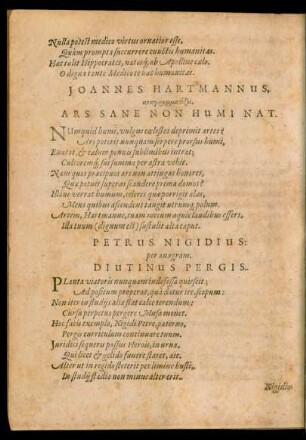 Nulla potest medico virtus ornatior esse,
Quàm prompta succurrere cunctis humanitas.
Hac tulit Hippocrates, natus à Apolline calo.
O digna tanto Medico tenax humanitas.
JOANNES HARTMANNUS,
ARS SANE NON HUMI NAT.
NUmquid humi, vulgus cælestes deprimit artes?
Ars poteris nunquam serpere prorsus humi,
Evolat, & calum pennis sublimibus intrat;
Cultorem suum summa per astra vehit.
Nam quos præcipuos artium attingit honores,
Qua potuit superas scandere prema domos?
Haud verrat humum, celeres quæ porrigit alas,
Mens quibus ascendens tangit utrumq; polum.
Artem, Hartmanne, tuam rerum agnis laudibus effers,
Illa tuum (dignum est) sustulit alta caput.
PETRUS NIGIDIUS:
per anagram.
DIUTINUS PERGIS.
PLanta viatoris nunquam indefessa quiescit;
Ad positum properat, quà licet ire, scopum:
Non iter in studiis alia stat calce terendum;
Cursu perpetuo pergere Musa movet.
Hoc facis exemplo, Nigidi Petre, paterno,
Pergis curriculum continuare tuum.
Juridicos sequeris passus Herois, in urna
Qui licet & gelido funere stanet, ait.
Alter ut in rigido steterit per limine busti,
In studii stadio non minus alter erit.
Nigidius